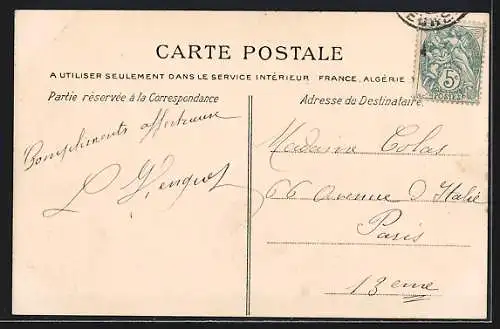 EURE
CARTE POSTALE
A UTILISER SEULEMENT DANS LE SERVICE INTÉRIEUR FRANCE, ALGÉRIE
Partie réservée à la Correspondance
Adresse du Destinataire
5c
POSTES
Compliments affectueux
L
Madame Colas
66 avenue d'Italie
Paris
13eme